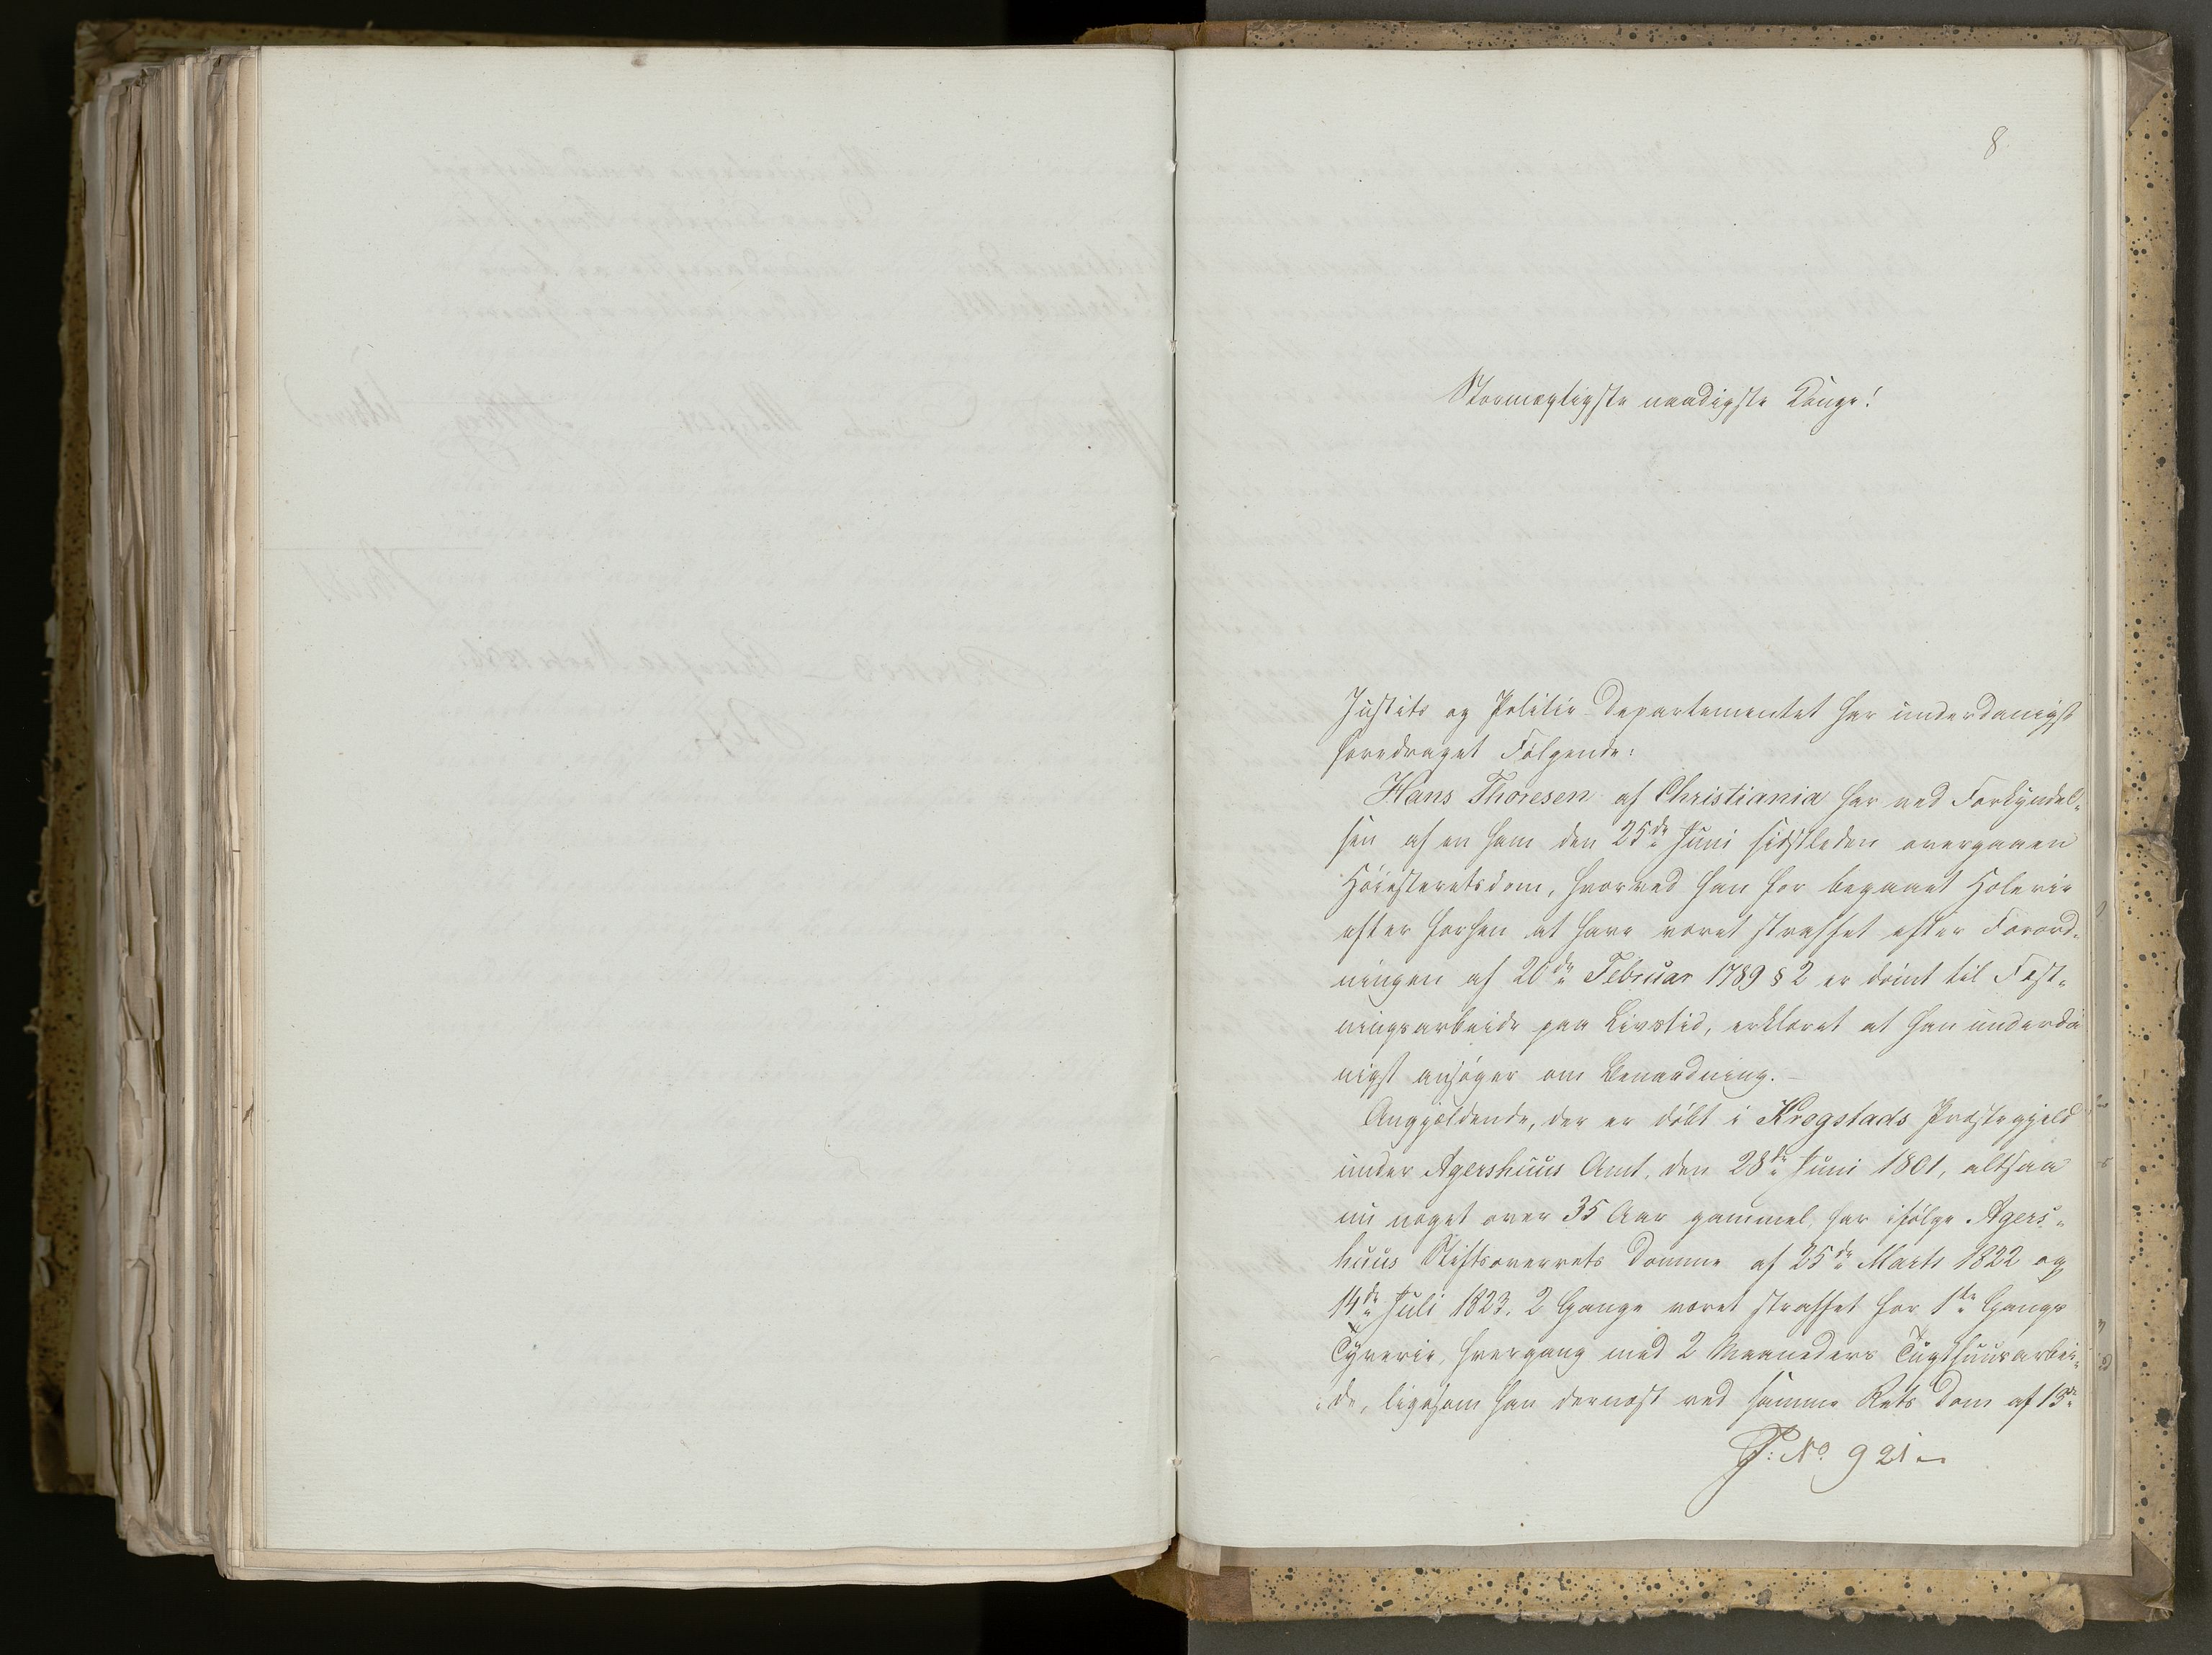 8
Stormægtigste naadigste Konge!
Justits og Politie-Departementet har underdanigst
foredraget Følgende:
Hans Thoresen af Christiania har ved Forkyndel-
sen af en ham den 25de Juni sidstleden overgaaen
Høiesteretsdom, hvorved han for begaaet Hæleri
efter forhen at have været straffet efter Forord-
ningen af 20de Februar 1789 § 2 er dømt til Fæst-
ningsarbeide paa Livstid, erklæret at han underda-
nigst ansøger om Benaadning.-
Angjældende, der er døbt i Krogstads Præstegjeld
under Agershuus Amt, den 28de Juni 1801, altsaa
nu noget over 35 Aar gammel, har ifølge Agers-
huus Stiftsoverrets Domme af 25de Marts 1822 og
14de Juli 1823, 2 Gange været straffet for 1ste Gangs
Tyverie, hvergang med 2 Maaneders Tugthuusarbei-
de, ligesom han dernæst ved samme Rets Dom af 13de
P: No 921